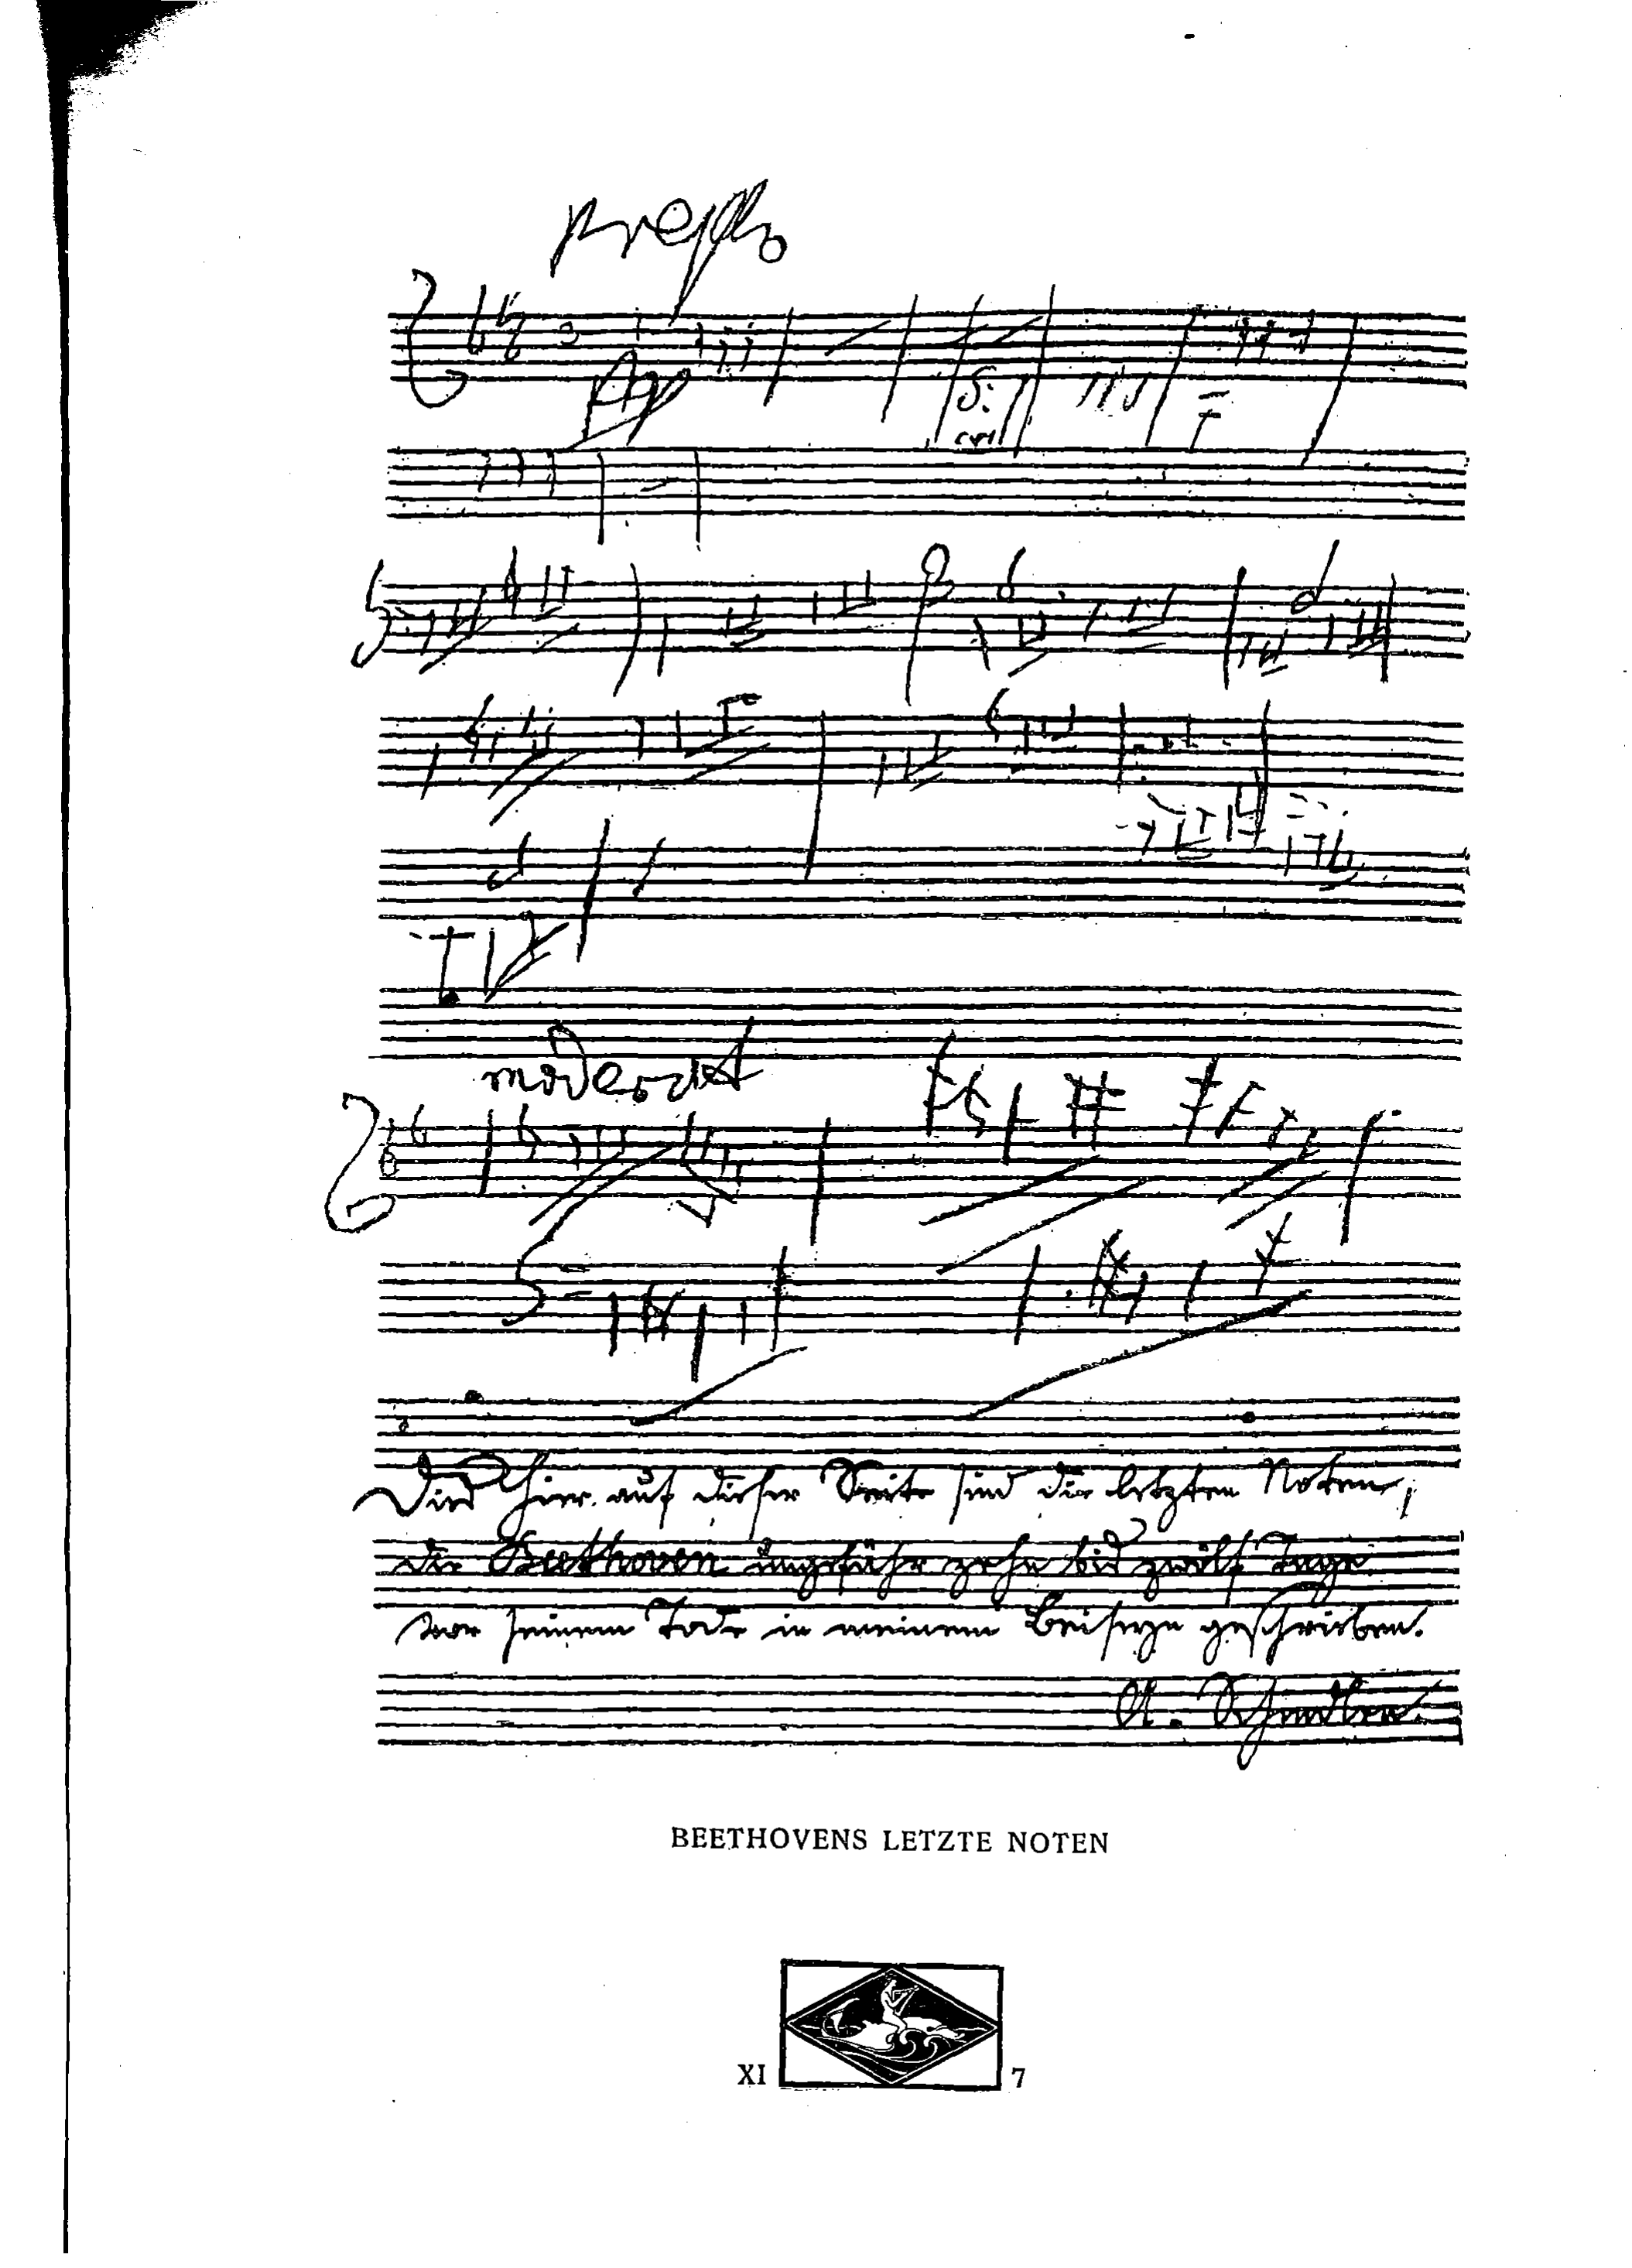 presto
moderat
Dies hier auf dieser Seite sind die letzten Noten,
die Beethoven ungefähr zehn bis zwölf Tage
vor seinem Tode in meinem Beiseyn geschrieben.
A. Schindler.
BEETHOVENS LETZTE NOTEN
XI 7